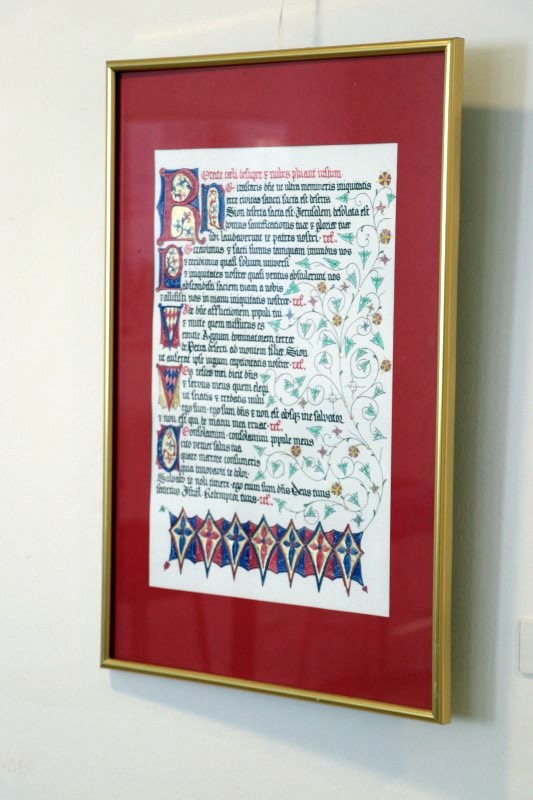 Rorate cæli desuper & nubes pluant iustum
Ne irascaris dñe ne ultra memineris iniquitatis
ecce civitas sancti facta est deserta
Sion deserta facta est · Jerusalem desolata est
domus sanctificationis tuæ & gloriæ tuæ
ubi laudaverunt te patres nostri · ref.
Peccavimus & facti sumus tamquam immundus nos
& cecidimus quasi folium universi
& iniquitates nostræ quasi ventus abstulerunt nos
abscondisti faciem tuam a nobis
& allisisti nos in manu iniquitatis nostræ · ref.
Vide dñe afflictionem populi tui
& mitte quem missurus es
emitte Agnum dominatorem terræ
de Petra deserti ad montem filiæ Sion
ut auferat ipse iugum captivitatis nostræ · ref.
Vos testes mei dicit dñs
& servus meus quem elegi
ut sciatis & credatis mihi
ego sum · ego sum dñs & non est absq; me salvator
& non est qui de manu mea eruat · ref.
Consolamini · consolamini popule meus
cito veniet salus tua
quare mærore consumeris
quia innovavit te dolor
Salvabo te noli timere · ego enim sum dñs Deus tuus
Sanctus Israel Redemptor tuus · ref.